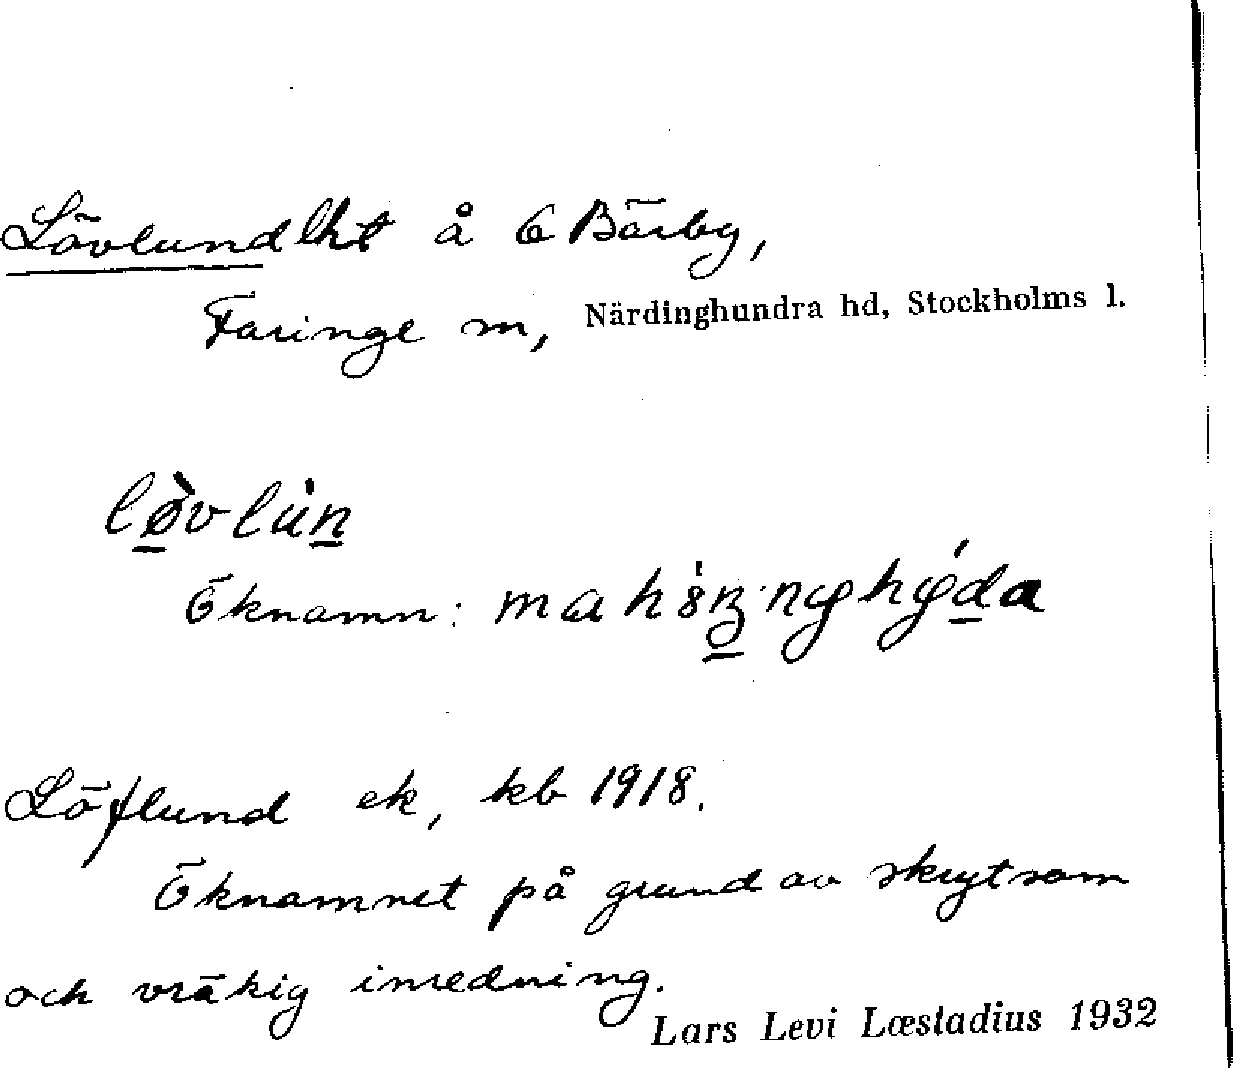 Lövlund lht å G Bärby,
Faringe sn, Närdinghundra hd, Stockholms l.
lø̀vlùn
Öknamn:
Löflund ek, kb 1918.
Öknamnet på grund av skrytsam
och vräkig inredning.
Lars Levi Læstadius 1932